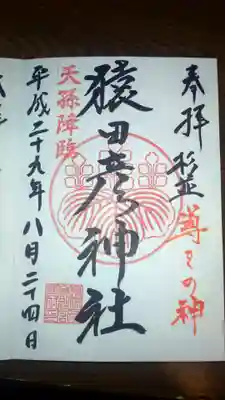 奉拝 杉並
導きの神
猿田彦神社
天孫降臨
平成二十九年八月二十四日